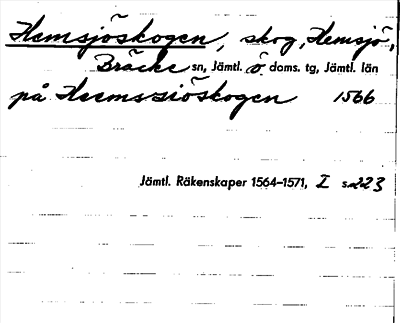 Hemsjöskogen, skog, Hemsjö,
Bräcke sn, Jämtl. ö doms. tg, Jämtl. län
på Heemssiöskogen 1566
Jämtl. Räkenskaper 1564–1571, I s. 223